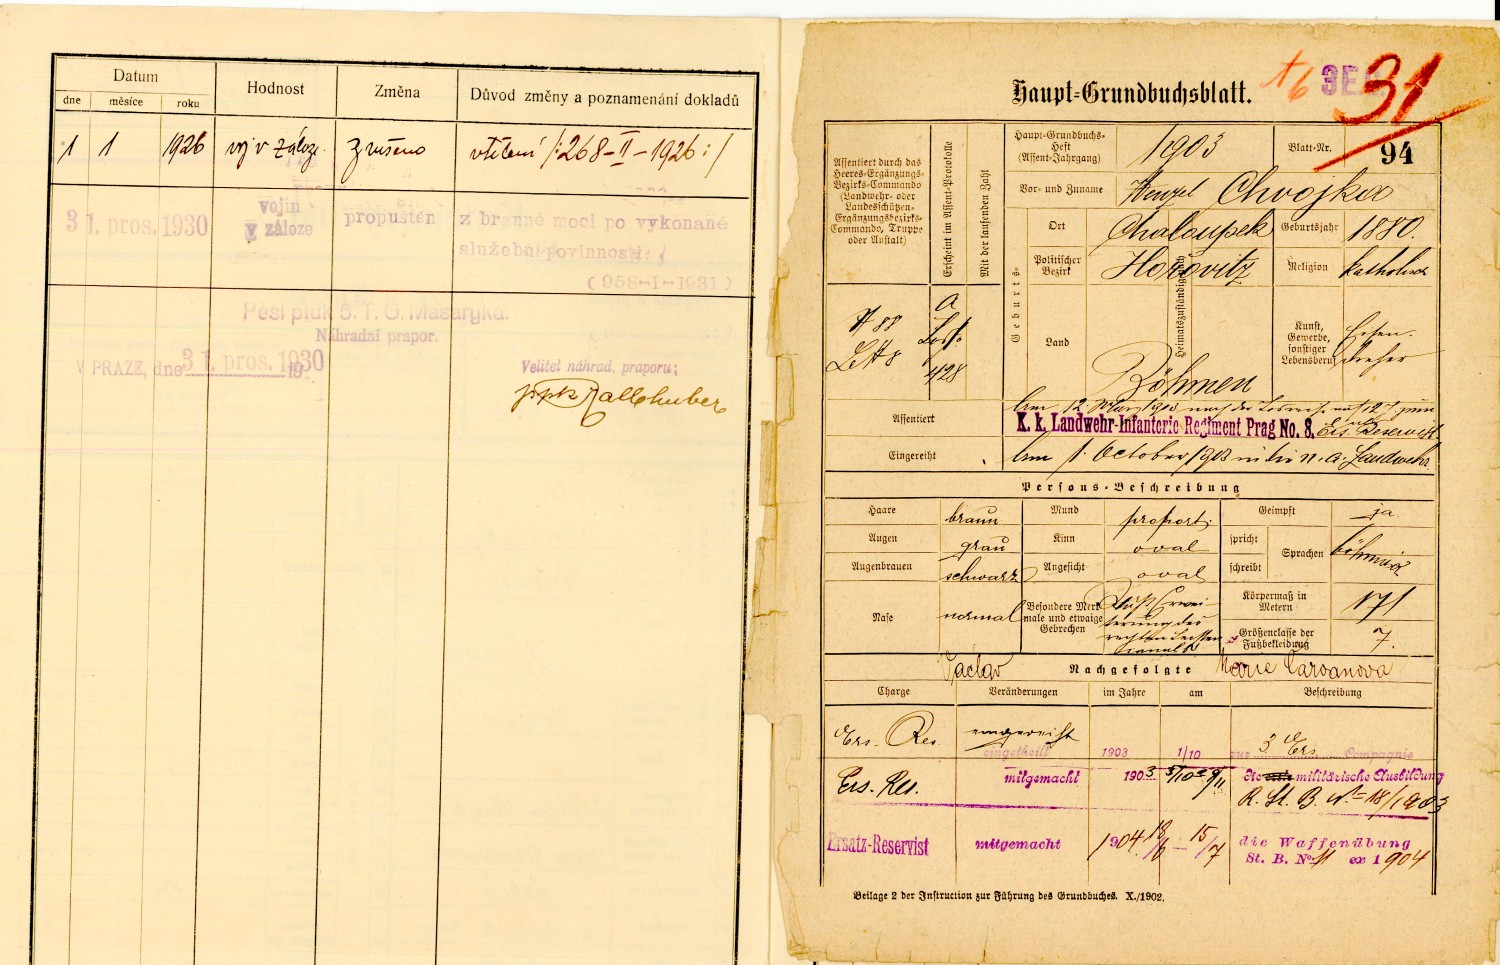 Datum
Hodnost
Změna
Důvod změny a poznamenání dokladů
dne
měsíce
roku
1 1 1926 voj v záloze zrušeno vtělení /:268-II-1926:/
31. pros. 1930
vojín
v záloze
propuštěn
z branné moci po vykonané
služební povinnosti.
(958-I-1931)
Pěší pluk 5. T. G. Masaryka.
Náhradní prapor.
V PRAZE, dne 31. pros. 1930
19
Velitel náhrad. praporu:
Haupt-Grundbuchsblatt.
31
Assentiert durch das
Heeres-Ergänzungs-
Bezirks-Commando
(Landwehr- oder
Landesschützen-
Ergänzungsbezirks-
Commando, Truppe
oder Anstalt)
Erscheint im Assent-Protokolle
Mit der laufenden Zahl
Haupt-Grundbuchs-
Heft
(Assent-Jahrgang)
1903
Blatt-Nr. 94
Vor- und Zuname
Wenzel Chvojka
Geburts-
Heimatszuständigkeits-
Ort
Chaloupek
Geburtsjahr
1880.
Politischer
Bezirk
Hořovitz
Religion
katholisch
Land
Böhmen
Kunst,
Gewerbe,
sonstiger
Lebensberuf
Eisen-
dreher
428
Assentiert
am 12. März 1903
K. k. Landwehr-Infanterie-Regiment Prag No. 8.
Ers. Reservist
Eingereiht
am 1. October 1903 in die n. a. Landwehr
Persons-Beschreibung
Haare
braun
Mund
proport.
Geimpft
ja
Augen
grau
Kinn
oval
spricht
schreibt
Sprachen
böhmisch
Augenbrauen
schwarz
Angesicht
oval
Nase
normal
Besondere Merk-
male und etwaige
Gebrechen
Körpermaß in
Metern
171
Größenclasse der
Fußbekleidung
7.
Václav
Nachgefolgte
Marie
Charge
Veränderungen
im Jahre
am
Beschreibung
Ers. Res.
eingereiht
eingetheilt
1903
1/10
zur 3 Ers Compagnie
Ers. Res.
mitgemacht
1903
die militärische Ausbildung
R. St. B. No 18/1903
Ersatz-Reservist
mitgemacht
1904 18/6 - 15/7
die Waffenübung
St. B. No 11 ex 1904
Beilage 2 der Instruction zur Führung des Grundbuches. X./1902.